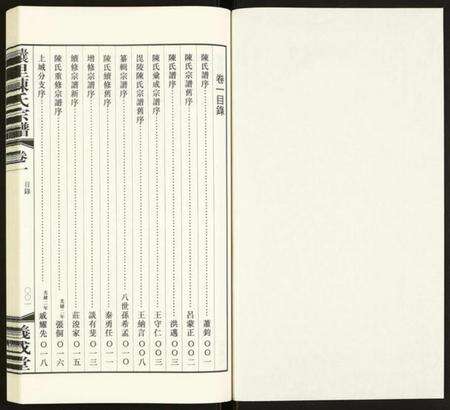 卷一目錄
陳氏譜序 蕭鈞 〇〇一
陳氏宗譜舊序 呂蒙正 〇〇二
陳氏譜序 洪邁 〇〇三
陳氏彙成宗譜序 王守仁 〇〇三
毘陵陳氏宗譜舊序 王納言 〇〇八
纂輯宗譜序 八世孫希孟 〇一〇
陳氏續修舊序 秦勇任 〇一一
增修宗譜序 談有斐 〇一三
續修宗譜新序 莊浚家 〇一五
陳氏重修宗譜序 光緒二年 張侗 〇一六
上城分支序 光緒二年 戚耀先 〇一八
陳氏宗譜
卷一
目錄
〇〇一
義成堂